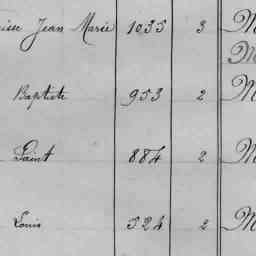 Jean Marie 1035 3 M
M
Baptiste 953 2 M
Saint 884 2 M
Louis 324 2 M